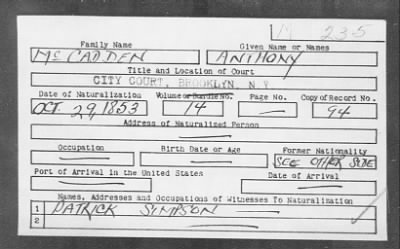 M 235
Family Name Given Name or Names
McCADDEN ANTHONY
Title and Location of Court
CITY COURT, BROOKLYN, N.Y.
Date of Naturalization Volume or Bundle No. Page No. Copy of Record No.
OCT. 29, 1853 14 — 94
Address of Naturalized Person
—
Occupation Birth Date or Age Former Nationality
— — SEE OTHER SIDE
Port of Arrival in the United States Date of Arrival
— —
Names, Addresses and Occupations of Witnesses To Naturalization
1 PATRICK SIMPSON —
2 —